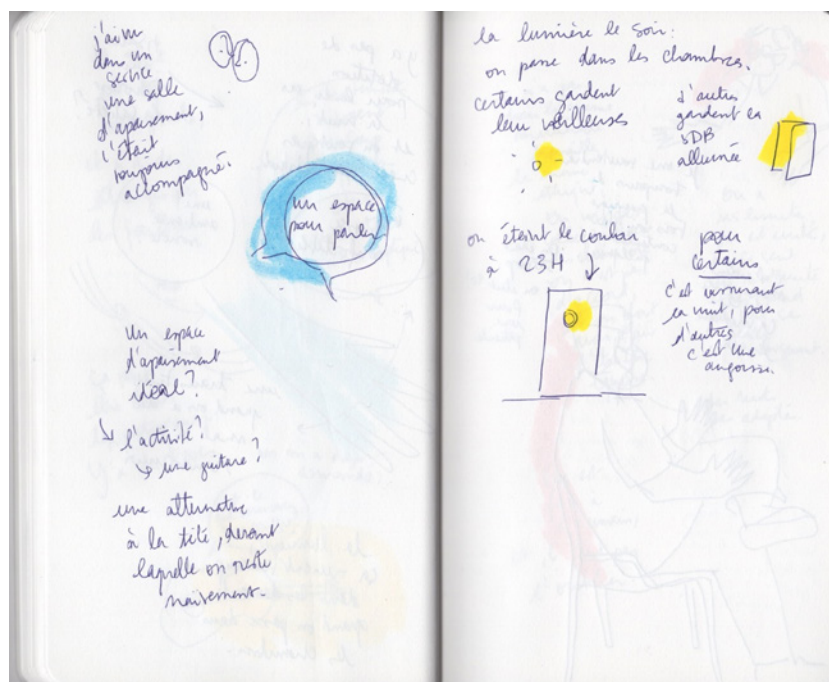 j'ai vu
dans un
service
une salle
d'apaisement,
c'était
toujours
accompagné.
un espace
pour parler
Un espace
d'apaisement
idéal ?
l'activité ?
une guitare ?
une alternative
à la télé, devant
laquelle on reste
la lumière le soir :
on passe dans les chambres.
certains gardent
leur veilleuses
d'autres
gardent la
SDB
allumée
on éteint le couloir
à 23H
pour
certains
c'est
la nuit, pour
d'autres
c'est une
angoisse.